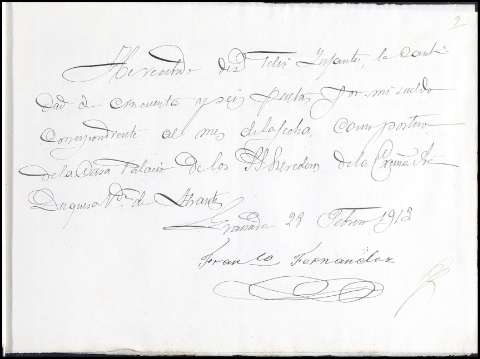 2
He recibido de Dn Felix Infante, la canti
dad de cincuenta y seis pesetas por mi sueldo
correspondiente al mes de la fecha, como portero
de la Casa Palacio de los Sres Herederos de la Excma Sra
Duquesa Vda de
Granada 28 Febrero 1913
Franco Fernandez